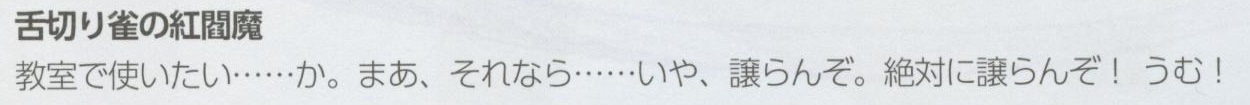 舌切り雀の紅閻魔
教室で使いたい……か。まあ、それなら……いや、譲らんぞ。絶対に譲らんぞ！ うむ！